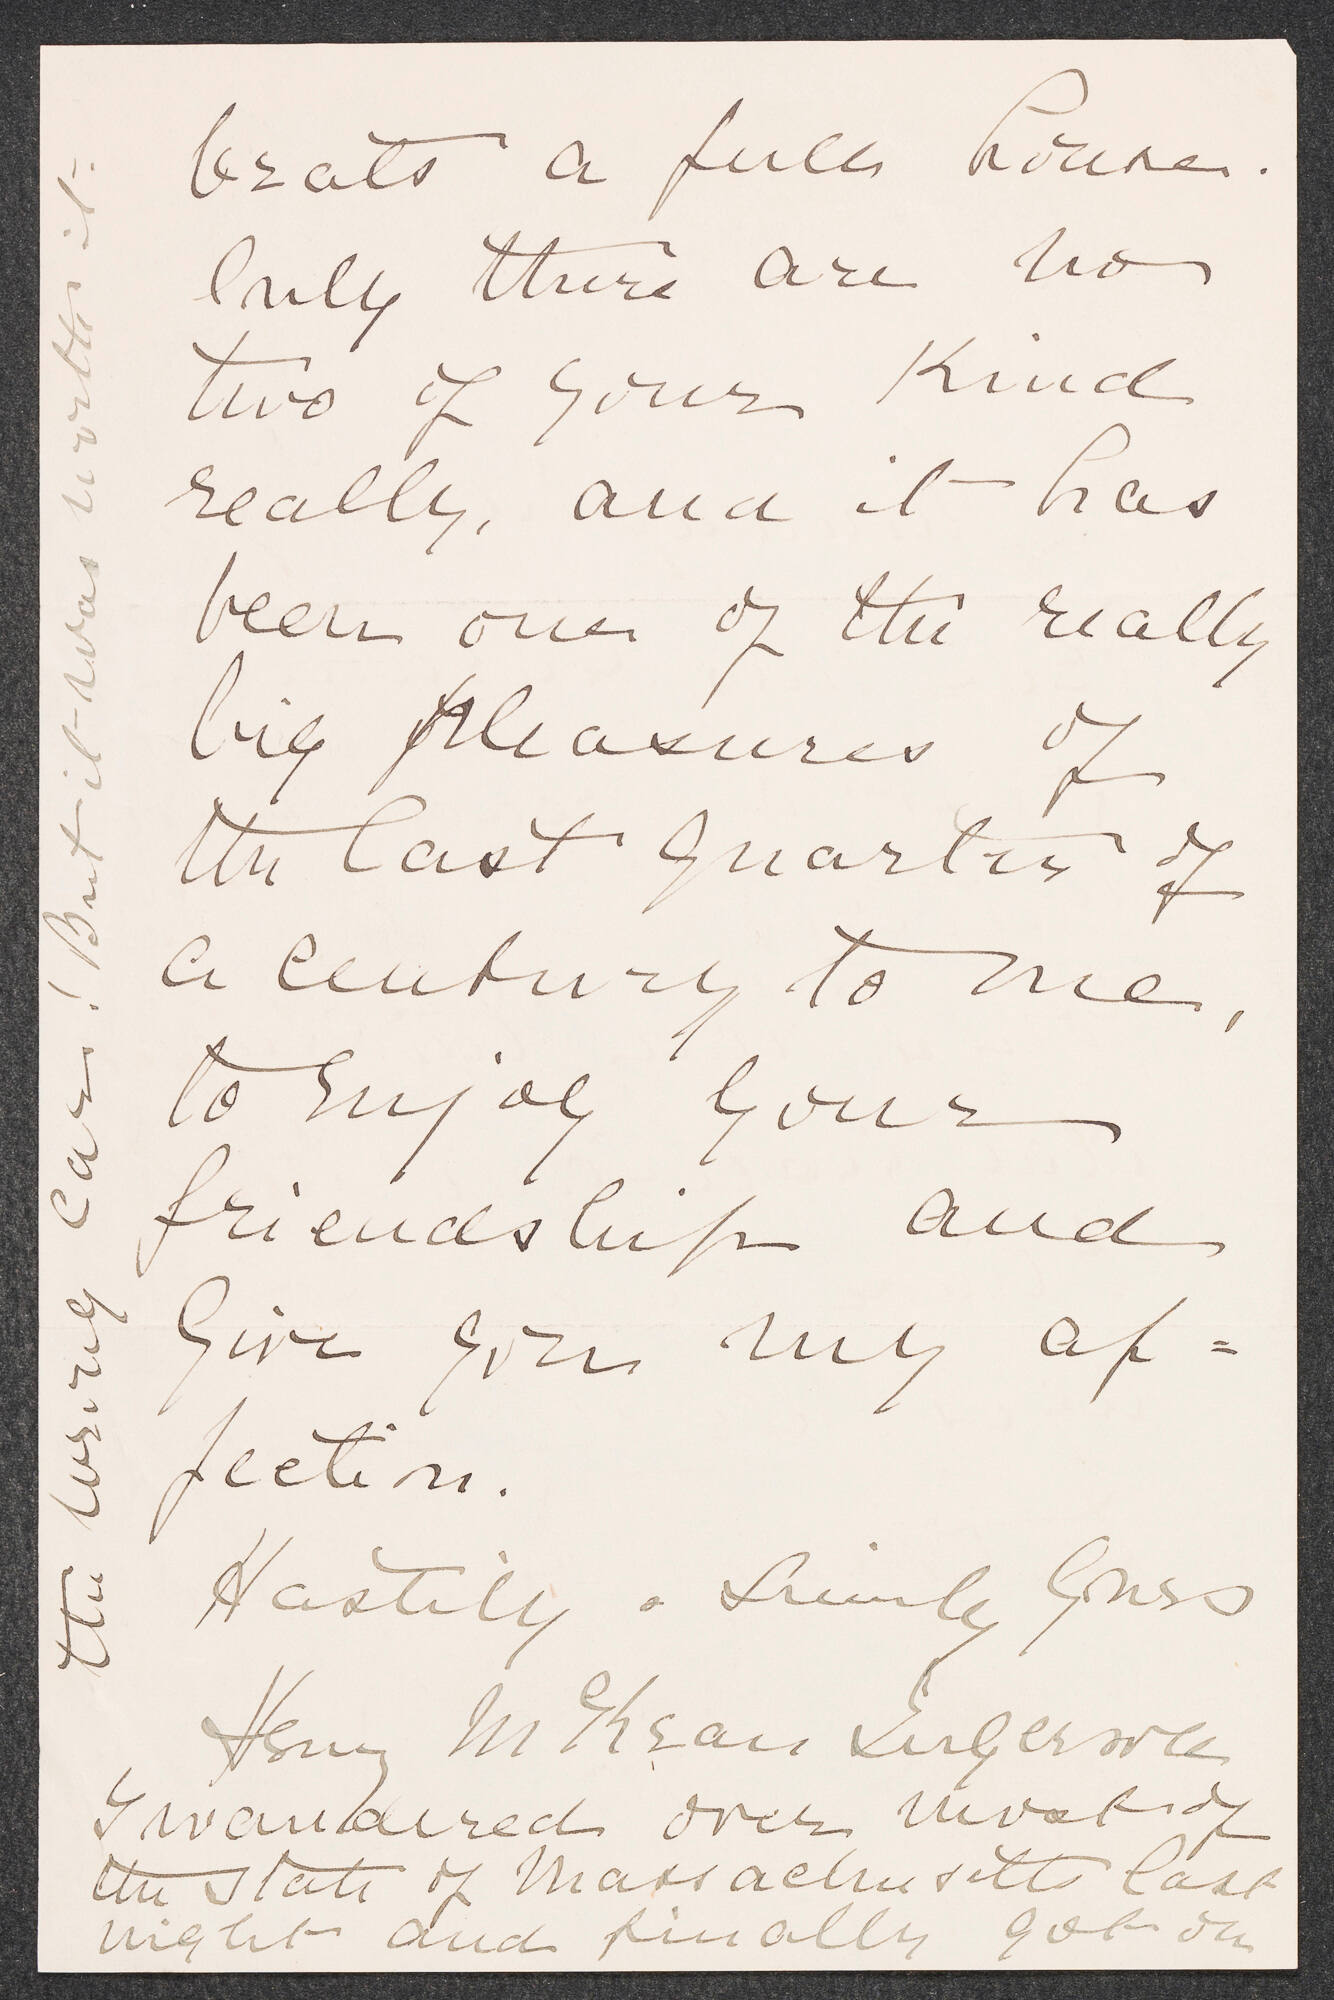 beats a full house.
Only there are no
two of your kind
really, and it has
been one of the really
big pleasures of
the last quarter of
a century to me,
to enjoy your
friendship and
give you my af=
fection.
Hastily & Sincerely Yours
Henry McKean Ingersoll
I wandered over most of
the State of Massachusetts last
night and finally got on
the wrong car! But it was worth it.